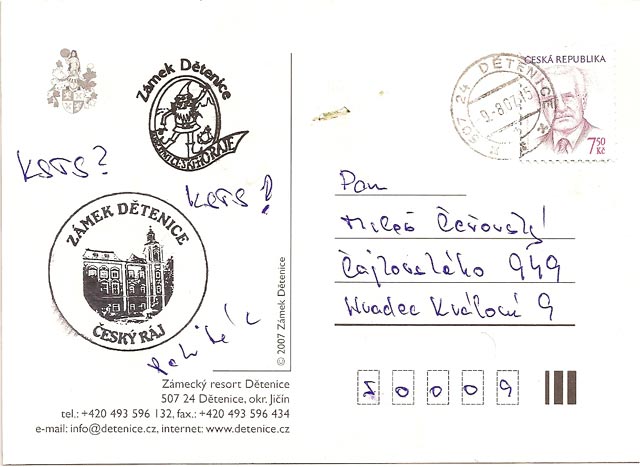 Zámek Dětenice
ČESKÁ REPUBLIKA
7,50
Kč
507 24 DĚTENICE
-9.-8.07.15
KSTS?
KSTS!
ZÁMEK DĚTENICE
ČESKÝ RÁJ
Pan
Miloš Čeřovský
Čajkovského 949
Hradec Králové 9
50009
© 2007 Zámek Dětenice
Zámecký resort Dětenice
507 24 Dětenice, okr. Jičín
tel.: +420 493 596 132, fax.: +420 493 596 434
e-mail: info@detenice.cz, internet: www.detenice.cz